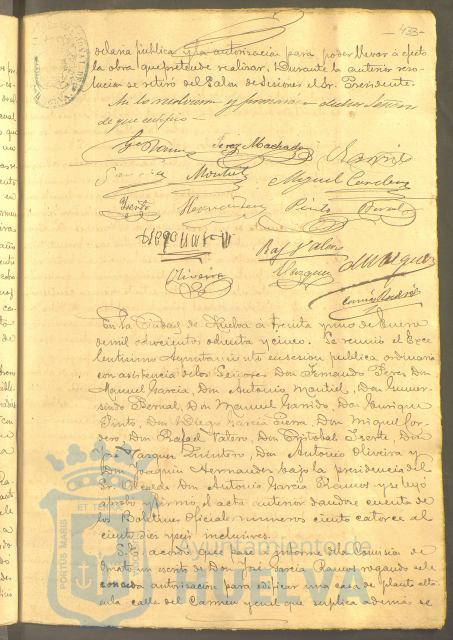 433
delana publica y la autorizacion para poder llevar á efecto
la obra que pretende realizar. Durante la anterior reso-
lucion se retiró del Salon de sesiones el Sr. Presidente.
Asi lo resolvieron y firmaron dichos Señores
de que certifico
Perez Machado
Garcia Montiel Miguel Cordero
Yserte Hernandez Pinto Bernal
Raf Valero
Oliveira Vazquez
En la Ciudad de Huelva á treinta y uno de Enero
de mil ochocientos ochenta y cinco. Se reunió el Exce-
lentisimo Ayuntamiento en sesion publica ordinaria
con asistencia de los Señores Don Fernando Perez, Don
Manuel Garcia, Don Antonio Montiel, Don Gumer-
sindo Bernal, Don Manuel Garrido, Don Enrique
Pinto, Don Diego Garcia Sierra, Don Miguel Cor-
dero, Don Rafael Valero, Don Cristobal Yserte, Don
José Vazquez Quintero, Don Antonio Oliveira y
Don Joaquin Hernandez bajo la presidencia del
Sr. Alcalde Don Antonio Garcia Ramos y se leyó
aprobó y firmó el acta anterior dandose cuenta de
los Boletines Oficial numeros ciento catorce al
ciento diez y seis inclusives.
Se acordó que pase á informe de la Comision de
Ornato un escrito de Don José Garcia Ramos rogando se le
conceda autorizacion para edificar una casa de planta alta
calle del Carmen y en el que suplica ademas se
PORTUS MARIS ET TERRAE
Ayuntamiento de
HUELVA